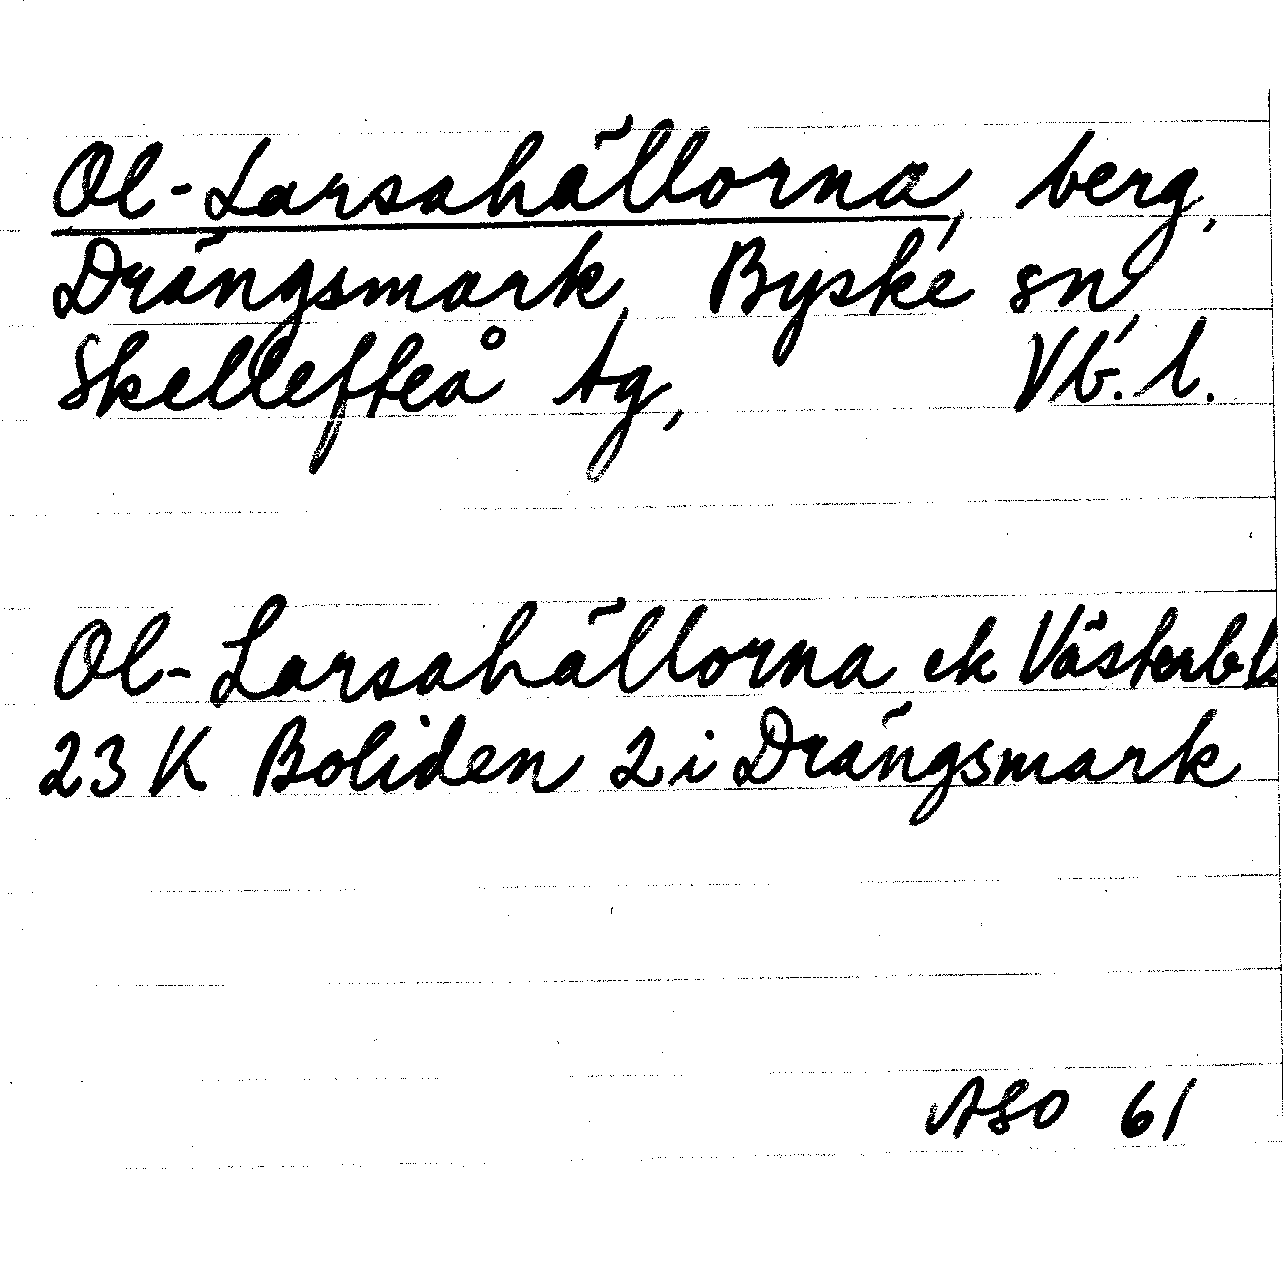 Ol-Larsahällorna, berg,
Drängsmark, Byske sn,
Skellefteå tg, Vb. l.
Ol-Larsahällorna ek Västerbl
23 K Boliden 2 i Drängsmark
ASO 61